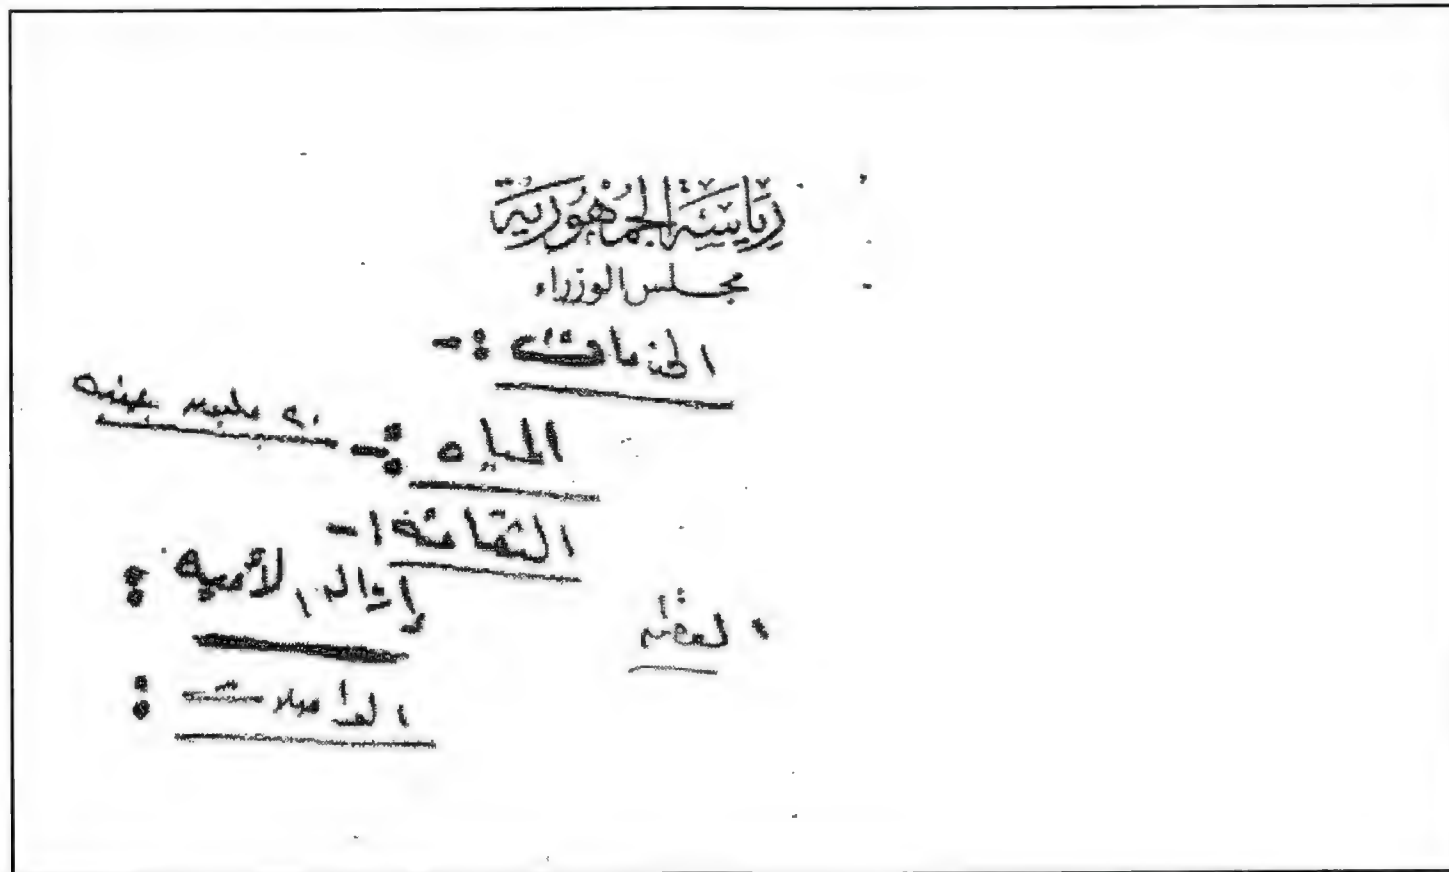 رياسة الجمهورية
مجلس الوزراء
الخدمات :-
المياه :- ٢٠ مليون جنيه
الثقافة :-
إزالة الأمية :